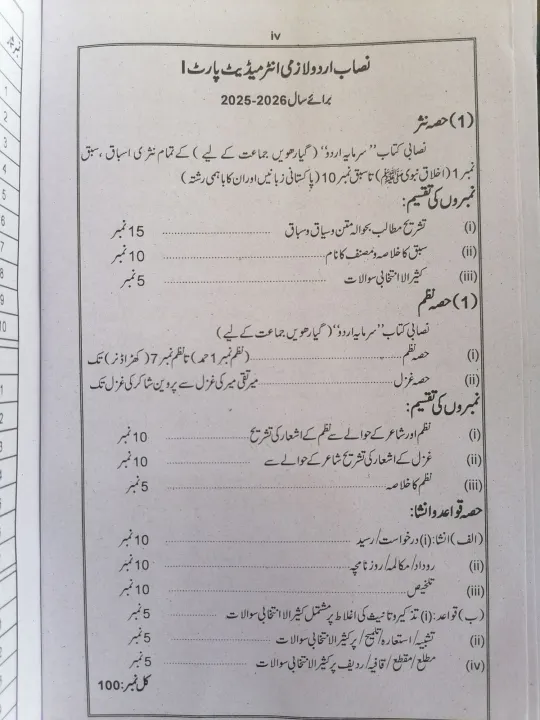 iv
نصاب اردو لازمی انٹرمیڈیٹ پارٹ I
برائے سال 2026-2025
(1) حصہ نثر
نصابی کتاب "سرمایہ اردو" (گیارھویں جماعت کے لیے) کے تمام نثری اسباق، سبق
نمبر 1 (اخلاق نبوی ﷺ) تا سبق نمبر 10 (پاکستانی زبانیں اور ان کا باہمی رشتہ)
نمبروں کی تقسیم:
(i) تشریح مطالب بحوالہ متن و سیاق و سباق ........ 15 نمبر
(ii) سبق کا خلاصہ و مصنف کا نام ........ 10 نمبر
(iii) کثیر الانتخابی سوالات ........ 5 نمبر
(1) حصہ نظم
نصابی کتاب "سرمایہ اردو" (گیارھویں جماعت کے لیے)
(i) حصہ نظم ........ (نظم نمبر 1 حمد) تا نظم نمبر 7 (کھڑا ڈنر) تک
(ii) حصہ غزل ........ میر تقی میر کی غزل سے پروین شاکر کی غزل تک
نمبروں کی تقسیم:
(i) نظم اور شاعر کے حوالے سے نظم کے اشعار کی تشریح ........ 10 نمبر
(ii) غزل کے اشعار کی تشریح شاعر کے حوالے سے ........ 10 نمبر
(iii) نظم کا خلاصہ ........ 5 نمبر
حصہ قواعد و انشا:
(الف) انشا: (i) درخواست/رسید ........ 10 نمبر
(ii) روداد/مکالمہ/روزنامچہ ........ 10 نمبر
(iii) تلخیص ........ 10 نمبر
(ب) قواعد: (i) تذکیر و تانیث کی اغلاط پر مشتمل کثیر الانتخابی سوالات ........ 5 نمبر
(ii) تشبیہ/استعارہ/تلمیح/پر کثیر الانتخابی سوالات ........ 5 نمبر
(iv) مطلع/مقطع/قافیہ/ردیف پر کثیر الانتخابی سوالات ........ 5 نمبر
کل نمبر: 100
1
2
3
4
5
6
7
8
9
10